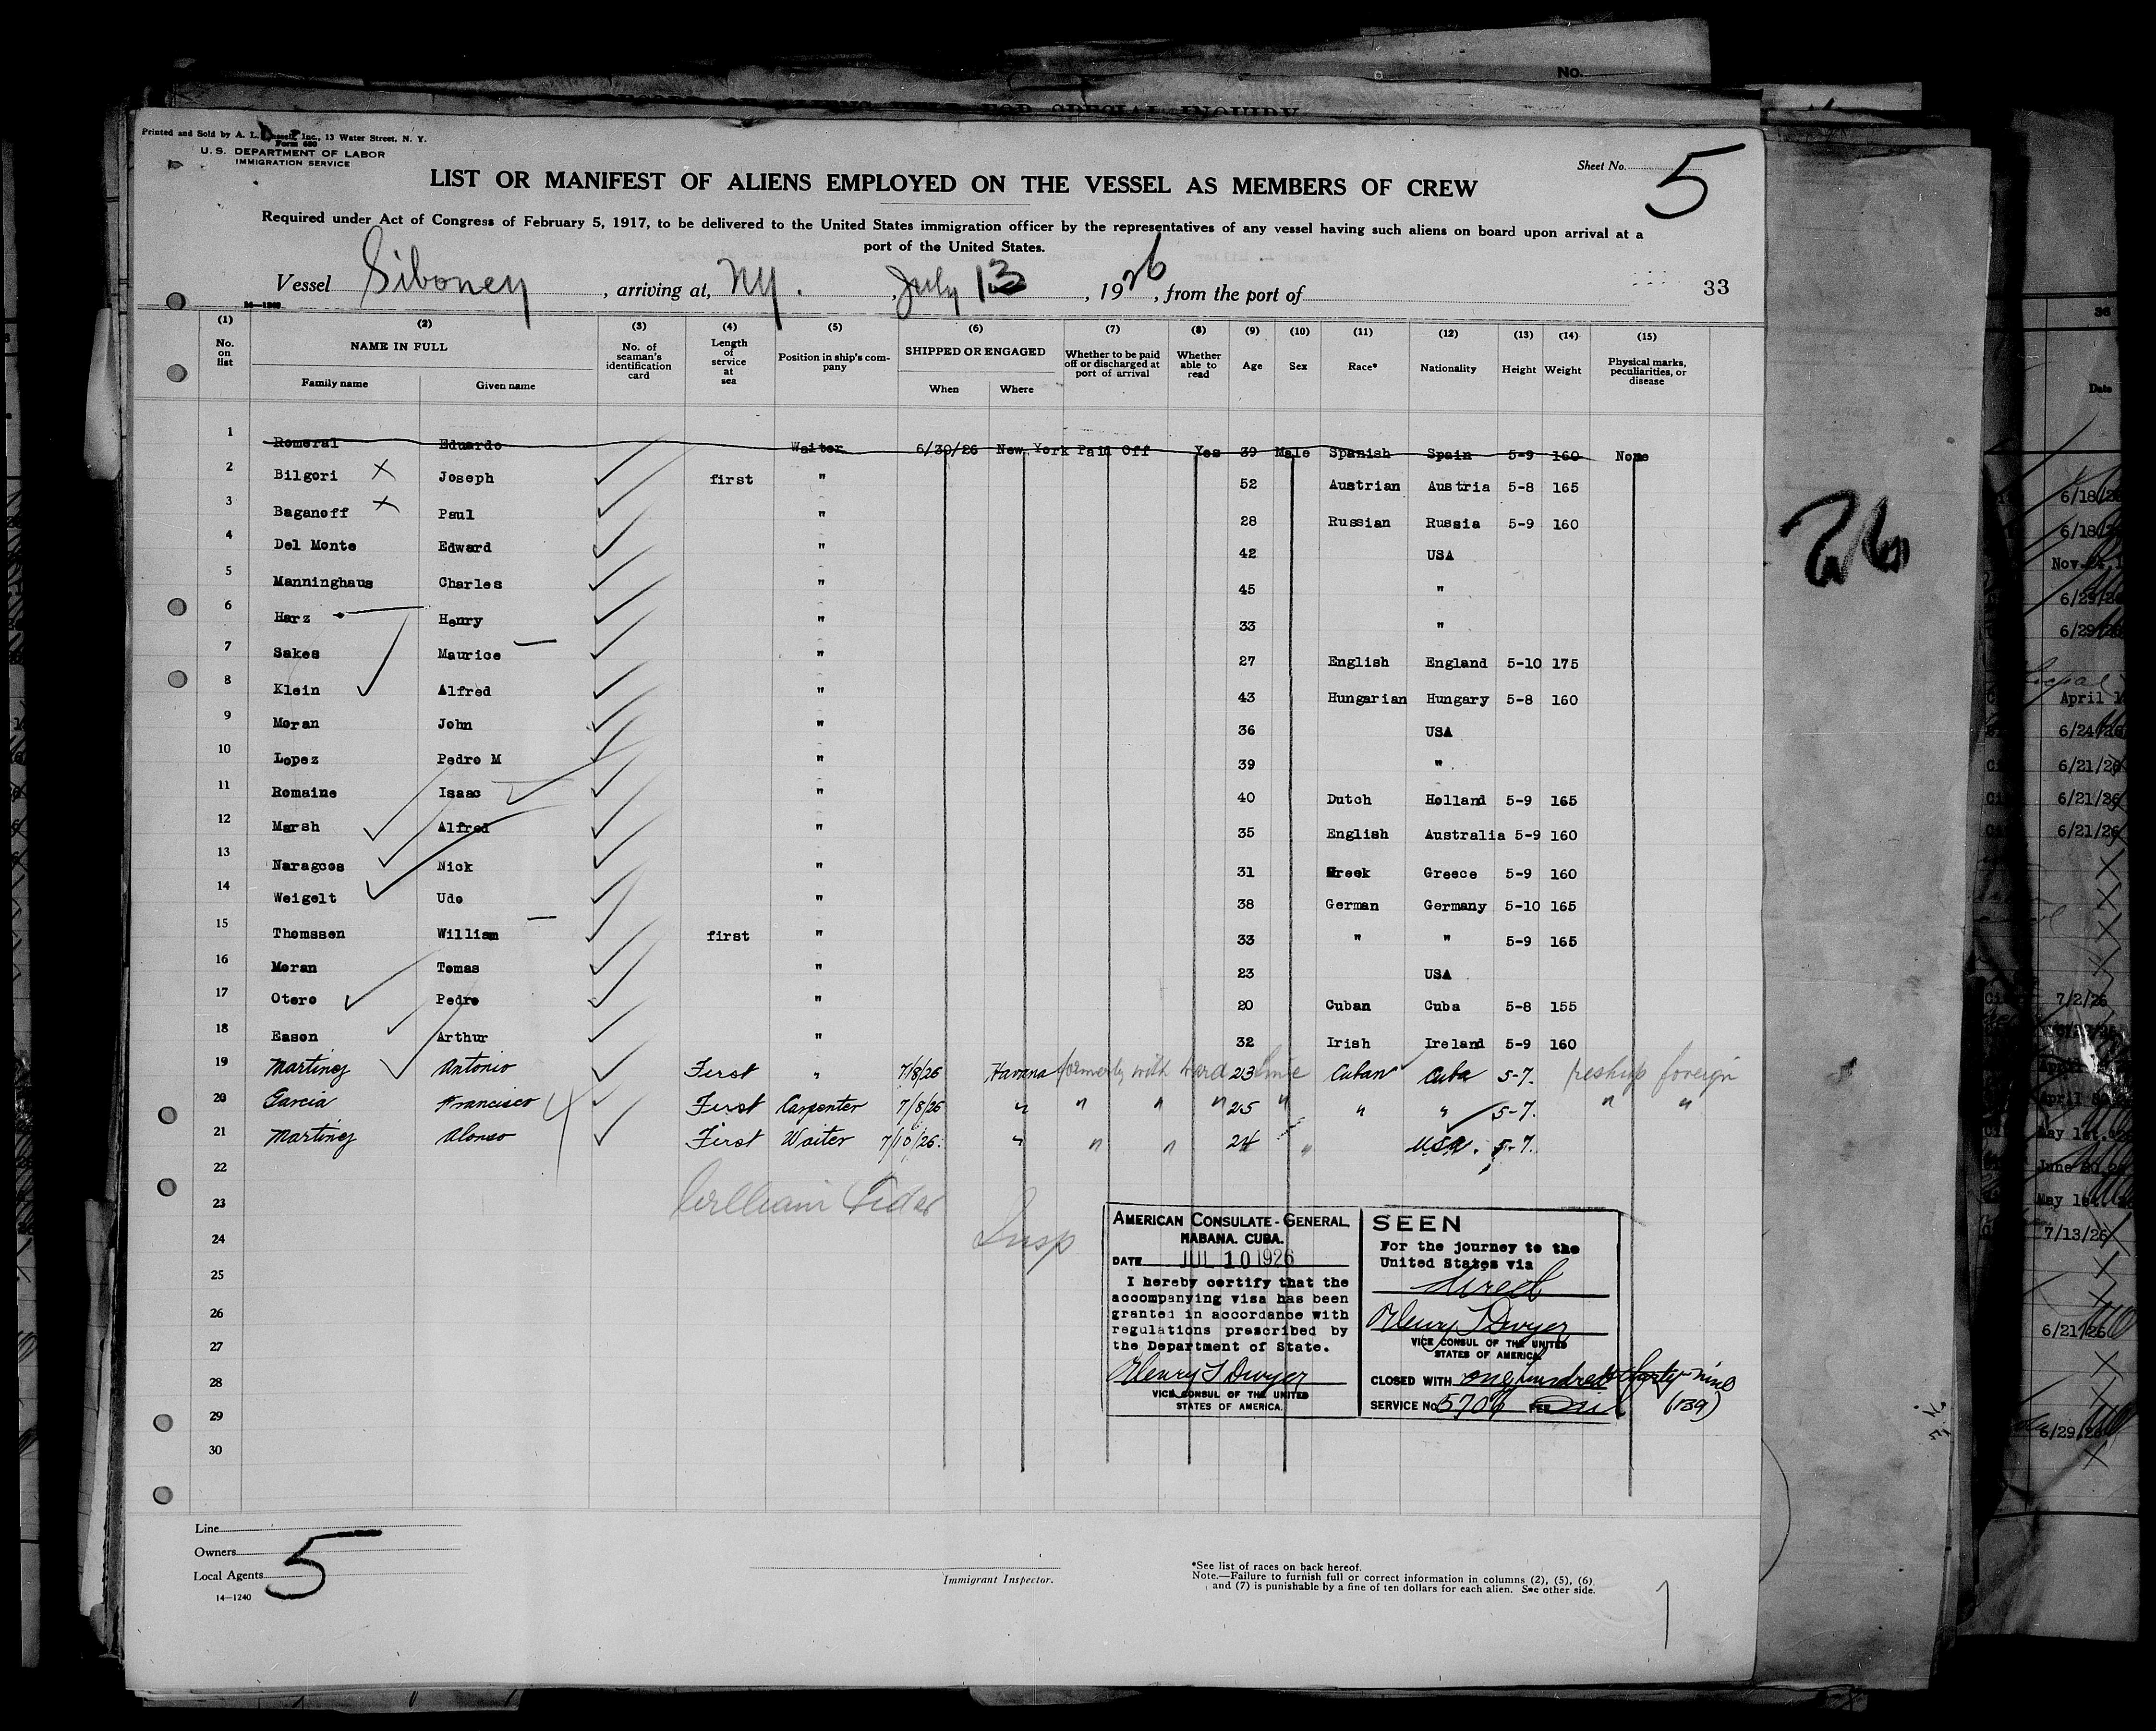 No.
Printed and Sold by A. L. Inc., 13 Water Street, N. Y.
Form 680
U. S. DEPARTMENT OF LABOR
IMMIGRATION SERVICE
Sheet No. 5
LIST OR MANIFEST OF ALIENS EMPLOYED ON THE VESSEL AS MEMBERS OF CREW
Required under Act of Congress of February 5, 1917, to be delivered to the United States immigration officer by the representatives of any vessel having such aliens on board upon arrival at a
port of the United States.
Vessel Siboney, arriving at, NY., July 13, 1926, from the port of
33
14—1240
(1) (2) (3) (4) (5) (6) (7) (8) (9) (10) (11) (12) (13) (14) (15)
No. on list NAME IN FULL Family name Given name No. of seaman's identification card Length of service at sea Position in ship's company SHIPPED OR ENGAGED When Where Whether to be paid off or discharged at port of arrival Whether able to read Age Sex Race* Nationality Height Weight Physical marks, peculiarities, or disease
1 Romeral Eduardo Waiter 6/30/26 New York Paid Off Yes 39 Male Spanish Spain 5-9 160 None
2 Bilgori Joseph first " 52 Austrian Austria 5-8 165
3 Baganoff Paul " 28 Russian Russia 5-9 160
4 Del Monte Edward " 42 USA
5 Manninghaus Charles " 45 "
6 Harz Henry " 33 "
7 Sakes Maurice " 27 English England 5-10 175
8 Klein Alfred " 43 Hungarian Hungary 5-8 160
9 Moran John " 36 USA
10 Lopez Pedro M " 39 "
11 Romaine Isaac " 40 Dutch Holland 5-9 165
12 Marsh Alfred " 35 English Australia 5-9 160
13 Naragcos Nick " 31 Greek Greece 5-9 160
14 Weigelt Udo " 38 German Germany 5-10 165
15 Thomssen William first " 33 " " 5-9 165
16 Moran Tomas " 23 USA
17 Otero Pedro " 20 Cuban Cuba 5-8 155
18 Eason Arthur " 32 Irish Ireland 5-9 160
19 Martinez Antonio First " 7/8/26 Havana formerly with Ward line 23 Cuban Cuba 5-7. reship foreign
20 Garcia Francisco First Carpenter 7/8/26 " " " " 25 " " " 5-7. " "
21 Martinez Alonso First Waiter 7/10/26. " " " 24 " USA. 5-7.
22
23 William
24 Insp
25
26
27
28
29
30
AMERICAN CONSULATE-GENERAL
HABANA. CUBA.
DATE JUL 10 1926
I hereby certify that the
accompanying visa has been
granted in accordance with
regulations prescribed by
the Department of State.
Henry T Dwyer
VICE CONSUL OF THE UNITED
STATES OF AMERICA.
SEEN
For the journey to the
United States via
direct
Henry T Dwyer
VICE CONSUL OF THE UNITED
STATES OF AMERICA
CLOSED WITH one hundred thirty-nine
SERVICE No 5706 (139)
Line
Owners
Local Agents
5
14—1240
Immigrant Inspector.
*See list of races on back hereof.
Note.—Failure to furnish full or correct information in columns (2), (5), (6)
and (7) is punishable by a fine of ten dollars for each alien. See other side.
36
Date
6/18/26
6/18/26
6/29/26
6/29/26
April 1
6/24/26
6/21/26
6/21/26
6/21/26
7/2/26
May 1st.
June 30
May 1st.
7/13/26
6/21/26
6/29.26